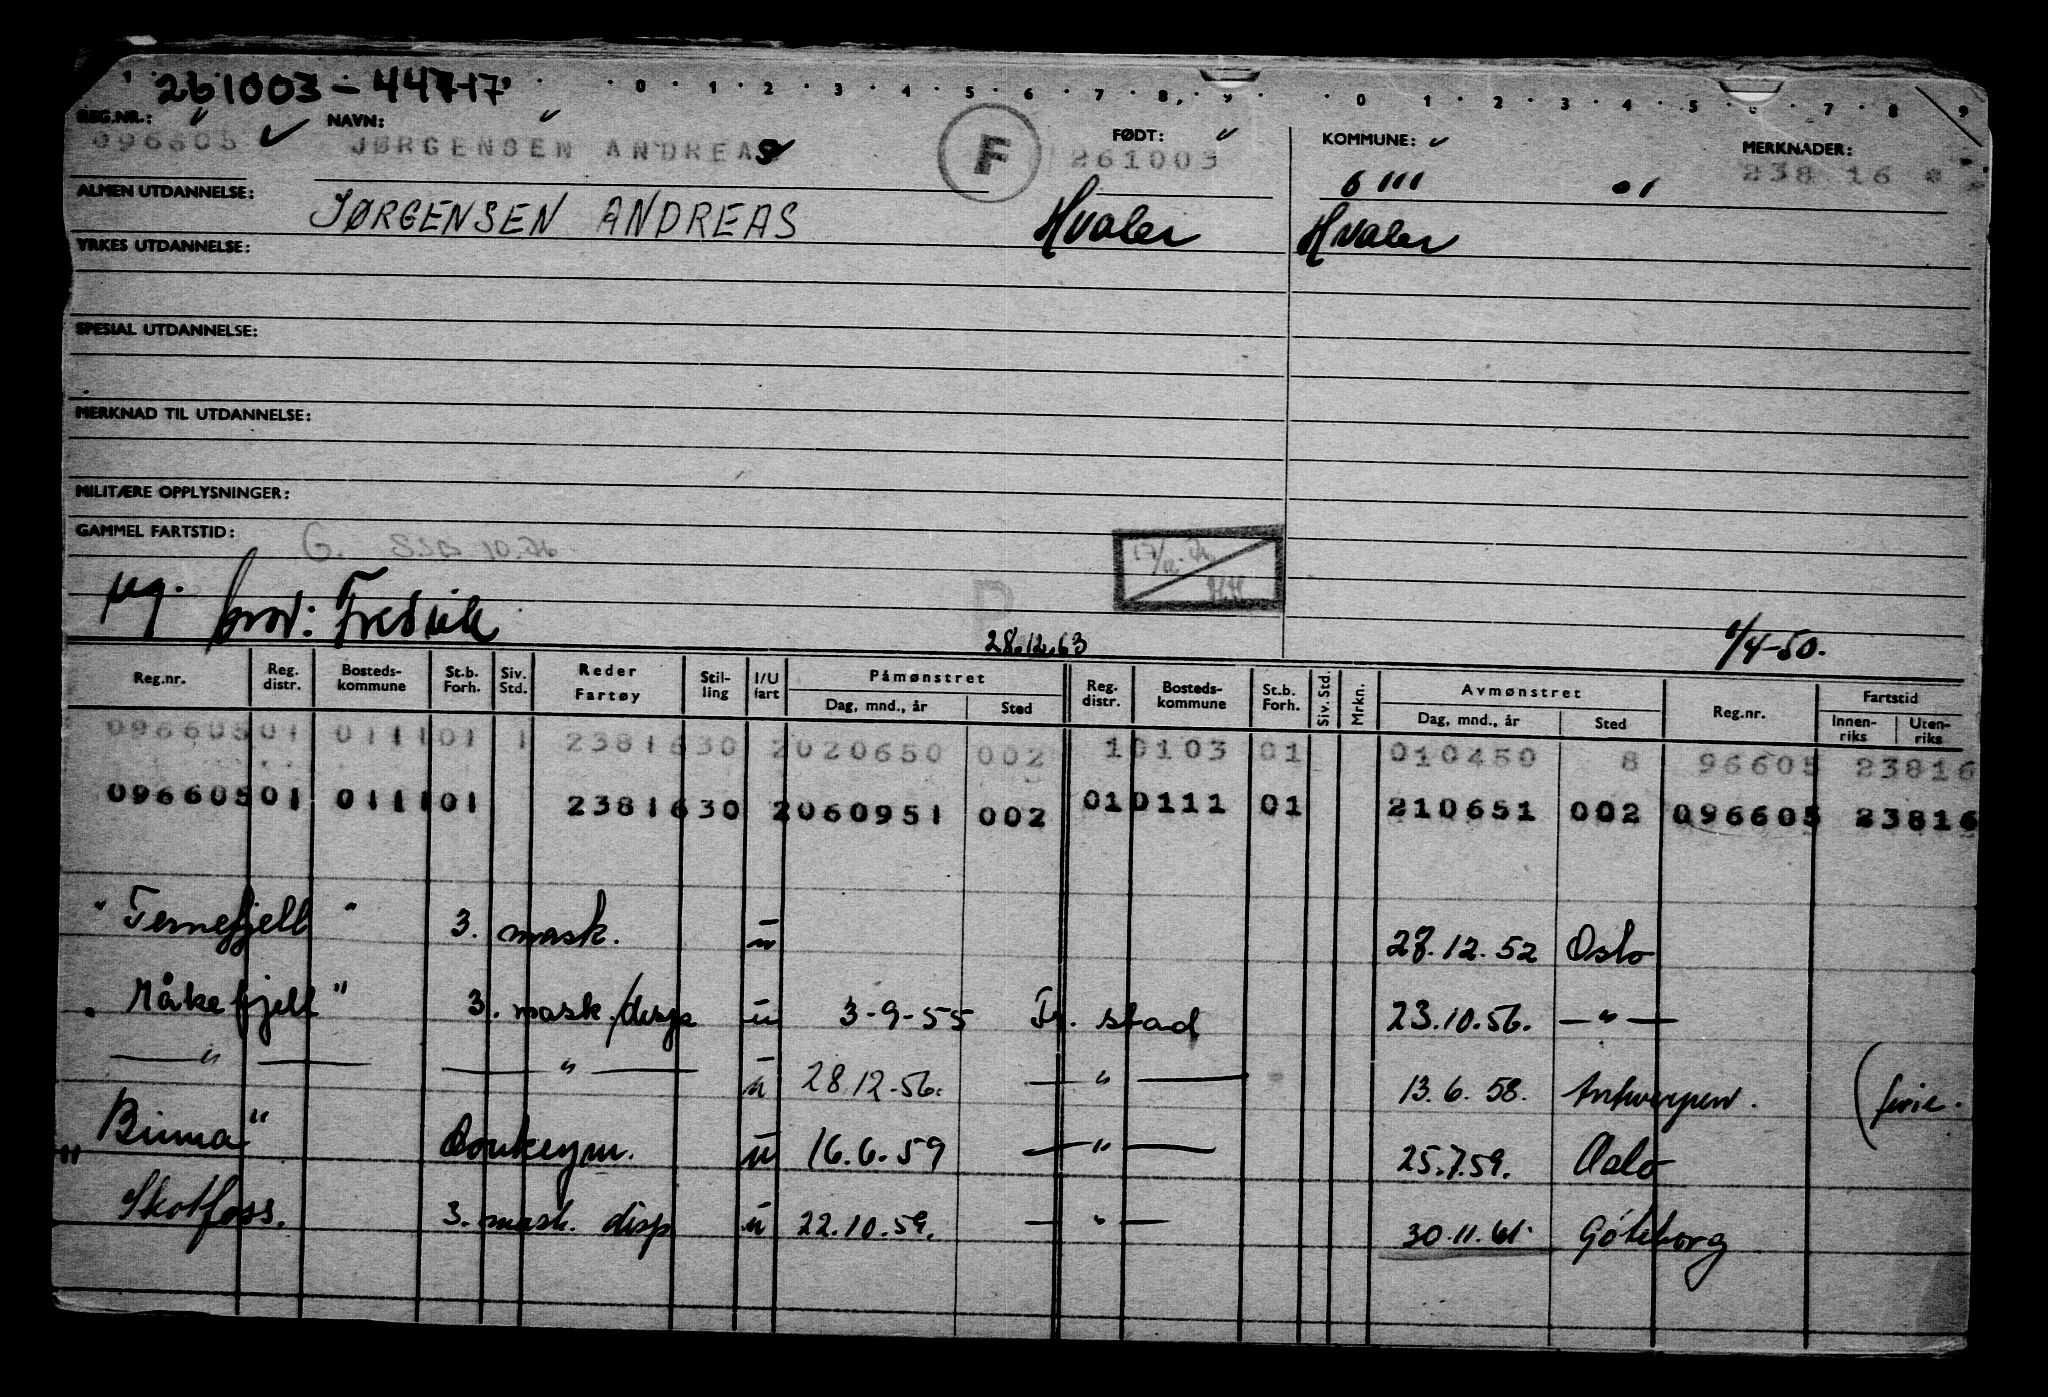 261003 - 44717
0 1 2 3 4 5 6 7 8 9 0 1 2 3 4 5 6 7 8 9
REG.NR.: NAVN: FØDT: KOMMUNE: MERKNADER:
096605 JØRGENSEN ANDREAS F 261003 238 16
ALMEN UTDANNELSE: 0111 01
JØRGENSEN ANDREAS Hvaler Hvaler
YRKES UTDANNELSE:
SPESIAL UTDANNELSE:
MERKNAD TIL UTDANNELSE:
MILITÆRE OPPLYSNINGER:
GAMMEL FARTSTID: G. SSB 10.76
P
prov: Fredrik 28.12.63 1/4-50.
Reg.nr. Reg. distr. Bosteds-kommune St.b. Forh. Siv. Std. Reder Fartøy Stil-ling I/U fart Påmønstret Reg. distr. Bosteds-kommune St.b. Forh. Siv. Std. Mrkn. Avmønstret Reg.nr. Fartstid
Dag, mnd., år Sted Dag, mnd., år Sted Innen-riks Uten-riks
096605 01 0111 01 1 23816 30 2 020650 002 1 0103 01 010450 8 96605 23816
096605 01 0111 01 23816 30 2 060951 002 01 0111 01 210651 002 096605 23816
" Ternefjell " 3. mask. u 27.12.52 Oslo
" Måkefjell " 3. mask./disp u 3-9-55 Fr. stad 23.10.56. — " —
— " — — " — u 28.12.56. — " — 13.6.58. Antwerpen. (ferie.
" Binna " Donkeym. u 16.6.59 — " — 25.7.59. Oslo
" Skotfoss. 3. mask. disp u 22.10.59. — " — 30.11.61. Göteborg